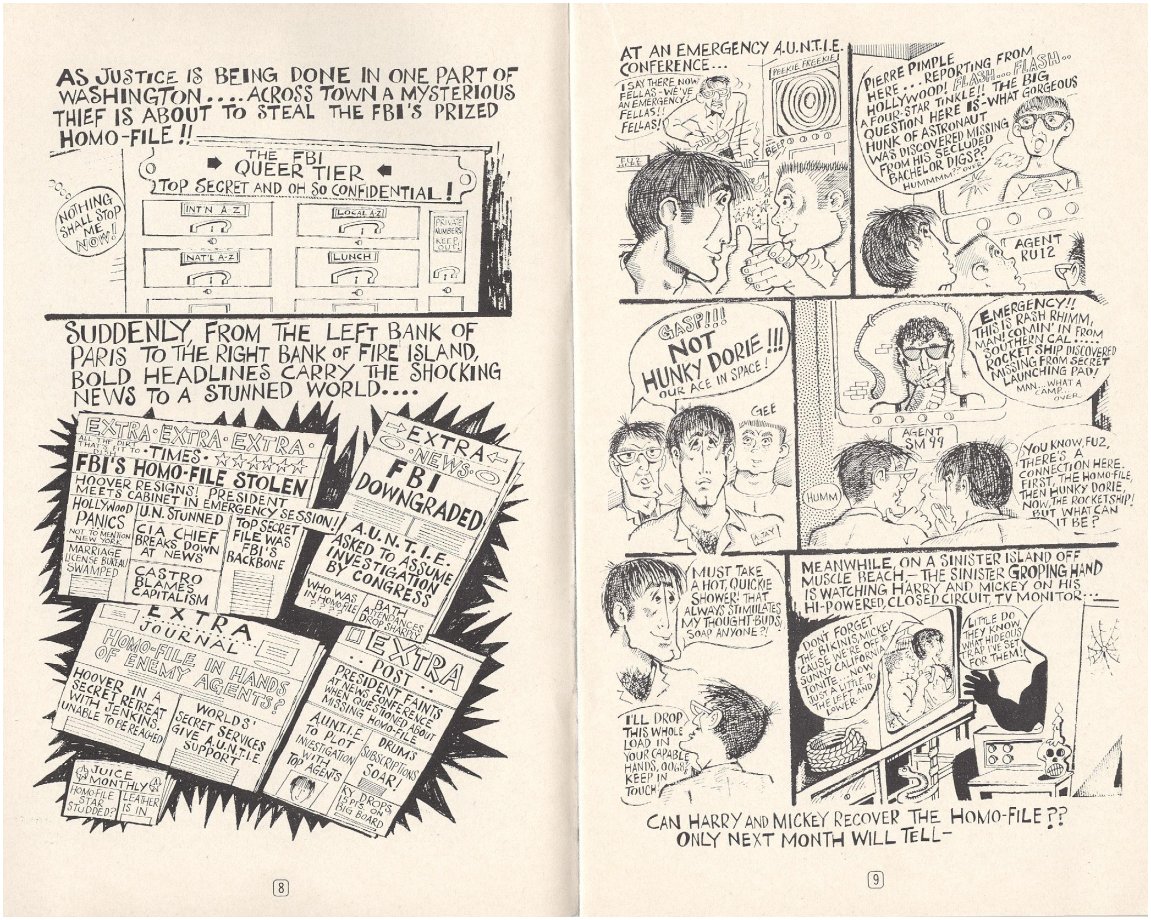 AS JUSTICE IS BEING DONE IN ONE PART OF
WASHINGTON.... ACROSS TOWN A MYSTERIOUS
THIEF IS ABOUT TO STEAL THE FBI'S PRIZED
HOMO-FILE!!
THE FBI
QUEER TIER
TOP SECRET AND OH SO CONFIDENTIAL!
NOTHING
SHALL STOP
ME
NOW!
INT'N A-Z
LOCAL A-Z
NAT'L A-Z
LUNCH
PRIVATE
NUMBERS
KEEP
OUT!
SUDDENLY, FROM THE LEFT BANK OF
PARIS TO THE RIGHT BANK OF FIRE ISLAND,
BOLD HEADLINES CARRY THE SHOCKING
NEWS TO A STUNNED WORLD....
EXTRA·EXTRA·EXTRA·
ALL THE DIRT
THAT'S FIT TO
·TIMES·
FBI'S HOMO-FILE STOLEN
HOOVER RESIGNS! PRESIDENT
MEETS CABINET IN EMERGENCY SESSION!
HOLLYWOOD
PANICS
NOT TO MENTION
NEW YORK
MARRIAGE
LICENSE BUREAU
SWAMPED
U.N. STUNNED
CIA CHIEF
BREAKS DOWN
AT NEWS
CASTRO
BLAMES
CAPITALISM
TOP SECRET
FILE WAS
FBI'S
BACKBONE
EXTRA
·NEWS·
FBI
DOWNGRADED
A.U.N.T.I.E.
ASKED TO ASSUME
INVESTIGATION
BY CONGRESS
WHO WAS
IN HOMO-FILE?
BATH
ATTENDANCES
DROP SHARPLY
EXTRA
JOURNAL
HOMO-FILE IN HANDS
OF ENEMY AGENTS?
HOOVER IN A
SECRET RETREAT
WITH JENKINS,
UNABLE TO BE REACHED
WORLDS'
SECRET SERVICES
GIVE A.U.N.T.I.E.
SUPPORT
EXTRA
..POST..
PRESIDENT FAINTS
AT NEWS CONFERENCE
WHEN QUESTIONED ABOUT
MISSING HOMO-FILE
A.U.N.T.I.E.
TO PLOT
INVESTIGATION
WITH
TOP AGENTS
DRUM
SUBSCRIPTIONS
SOAR!
KY DROPS
15 PTS ON
BIG BOARD
JUICE
MONTHLY
HOMO-FILE
STAR
STUDDED?
LEATHER
IS IN
8
AT AN EMERGENCY A.U.N.T.I.E.
CONFERENCE...
I SAY THERE NOW
FELLAS - WE'VE
AN EMERGENCY
FELLAS!!
FELLAS!
PEEKIE FREEKIE
BEEP
PIERRE PIMPLE
HERE... REPORTING FROM
HOLLYWOOD! FLASH... FLASH..
A FOUR-STAR TINKLE!! THE BIG
QUESTION HERE IS-WHAT GORGEOUS
HUNK OF ASTRONAUT
WAS DISCOVERED MISSING
FROM HIS SECLUDED
BACHELOR DIGS??
HUMMMM?? OVER
AGENT
RU12
GASP!!!
NOT
HUNKY DORIE!!!
OUR ACE IN SPACE!
GEE
EMERGENCY!!
THIS IS RASH RHIMM,
MAN! COMIN' IN FROM
SOUTHERN CAL!....
ROCKET SHIP DISCOVERED
MISSING FROM SECRET
LAUNCHING PAD!
MAN...WHAT A
CAMP.
OVER
AGENT
SM 99
HUMM
YOU KNOW, FU2,
THERE'S A
CONNECTION HERE.
FIRST, THE HOMO-FILE,
THEN HUNKY DORIE,
NOW, THE ROCKETSHIP!
BUT WHAT CAN
IT BE?
MUST TAKE
A HOT, QUICKIE
SHOWER! THAT
ALWAYS STIMULATES
MY THOUGHT-BUDS,
SOAP ANYONE?!
I'LL DROP
THIS WHOLE
LOAD IN
YOUR CAPABLE
HANDS,
KEEP IN
TOUCH!
MEANWHILE, ON A SINISTER ISLAND OFF
MUSCLE BEACH — THE SINISTER GROPING HAND
IS WATCHING HARRY AND MICKEY ON HIS
HI-POWERED, CLOSED CIRCUIT, TV MONITOR...
DON'T FORGET
THE BIKINIS, MICKEY
'CAUSE WE'RE OFF TO
SUNNY CALIFORNIA
TONITE. NOW A
BIT A LITTLE TO
THE LEFT AND
LOWER
LITTLE DO
THEY KNOW
WHAT HIDEOUS
TRAP I'VE SET
FOR THEM!!
CAN HARRY AND MICKEY RECOVER THE HOMO-FILE??
ONLY NEXT MONTH WILL TELL—
9